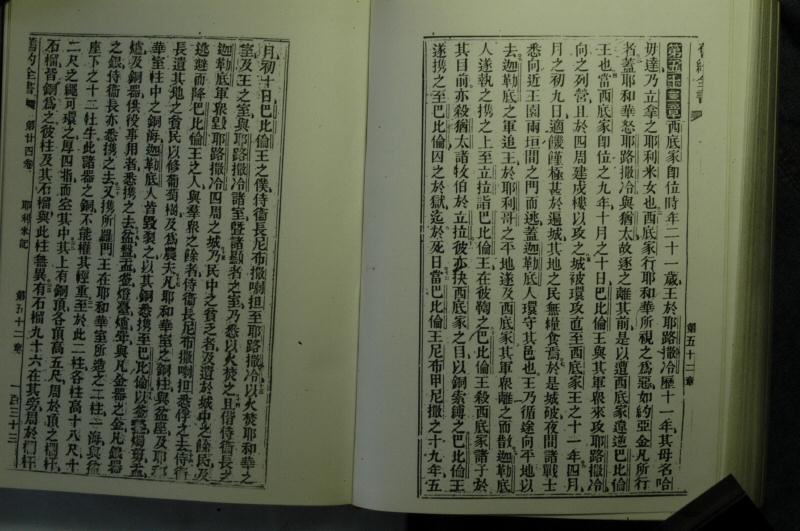 舊約全書
第五十二章
第五十二章西底家卽位時年二十一歲王於耶路撒冷歷十一年其母名哈
毋達乃立拿之耶利米女也西底家行耶和華所視之爲惡如約亞金凡所行
者蓋耶和華怒耶路撒冷與猶太故逐之離其前是以遭西底家違逆巴比倫
王也當西底家卽位之九年十月之十日巴比倫王與其軍衆來攻耶路撒冷
向之列營且於四周建戍樓以攻之城被環攻直至西底家王之十一年四月
月之初九日適饑饉極甚於遍城其地之民無糧食焉於是城破夜間諸戰士
悉向近王園兩垣間之門而逃蓋迦勒底人環守其邑也王乃循途向平地以
去迦勒底之軍追王於耶利哥之平地遂及西底家其軍衆離之而散迦勒底
人遂執之携之上至立拉詣巴比倫王在彼鞫之巴比倫王殺西底家諸子於
其目前亦殺猶太諸牧伯於立拉彼亦抉西底家之目以銅索縛之巴比倫王
遂携之至巴比倫囚之於獄迄於死日當巴比倫王尼布甲尼撒之十九年五
月初十日巴比倫王之僕侍衞長尼布撒喇担至耶路撒冷以火焚耶和華之
室及王之室與耶路撒冷諸室曁諸顯者之室乃悉以火焚之且偕侍衞長之
迦勒底軍衆毀耶路撒冷四周之城乃民中之貧乏者及遺於城中之餘民及
逃避而降巴比倫王之人與羣衆之餘者侍衞長尼布撒喇担悉俘之去侍衞
長遺其地之貧民以修葡萄樹及爲農夫凡耶和華室之銅柱與盆座及耶和
華室中之銅海迦勒底人皆毀裂之以其銅悉携至巴比倫以釜
爐及銅器供役事用者悉携之去盆盤盂釜燈臺爐等與凡金器之金凡銀器
之銀侍衞長亦悉携之去又携所羅門王在耶和華室所造之二柱一海與盆
座下之十二牡牛此諸器之銅不能權其輕重至於此二柱各柱高十八尺十
二尺之繩可環之厚四指而空其中其上有銅頂各頂高五尺周於頂之欄杆
石榴皆銅爲之彼柱及其石榴與此柱無異有石榴九十六在其旁周於欄杆
舊約全書
第廿四卷
耶利米記
第五十二章
一百三十三